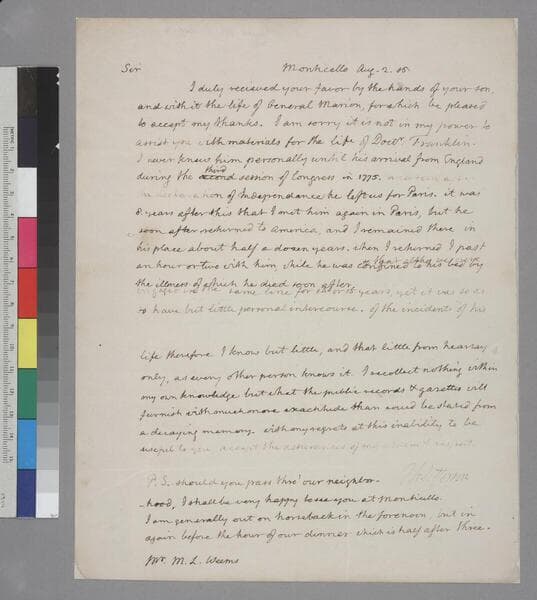 Sir Monticello Aug. 2. 15.
I duly recieved your favor by the hands of your son,
and with it the life of General Marion, for which be pleased
to accept my thanks. I am sorry it is not in my power to
assist you with materials for the life of Doctr. Franklin.
I never knew him personally until his arrival from England
during the second third session of Congress in 1775.
of Independance he left us for Paris. it was
8. years after this that I met him again in Paris, but he
soon after returned to America, and I remained there in
his place about half a dozen years. when I returned I past
an hour or two with him while he was confined to his bed by
the illness of which he died soon after.
the same line for years, yet it was so as
to have but little personal intercourse. of the incidents of his
life therefore I know but little, and that little from hearsay
only, as every other person knows it. I recollect nothing within
my own knowledge but what the public records & gazettes will
furnish with much more exactitude than could be stated from
a decaying memory. with my regrets at this inability to be
useful to you accept the assurances of my
P.S. should you pass thro' our neighbor-
-hood, I shall be very happy to see you at Monticello.
I am generally out on horseback in the forenoon, but in
again before the hour of our dinner which is half after three.
Mr. M. L. Weems